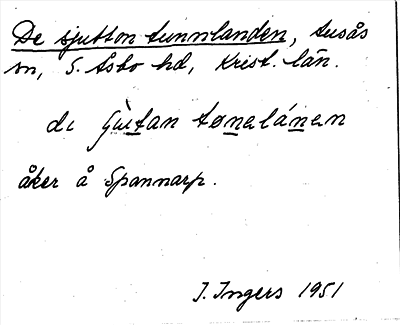 De sjutton tunnlanden, Ausås
sn, S. Åsbo hd, Krist. län.
di ɟùtan tønǝlánǝn
åker å Spannarp.
I. Ingers 1951